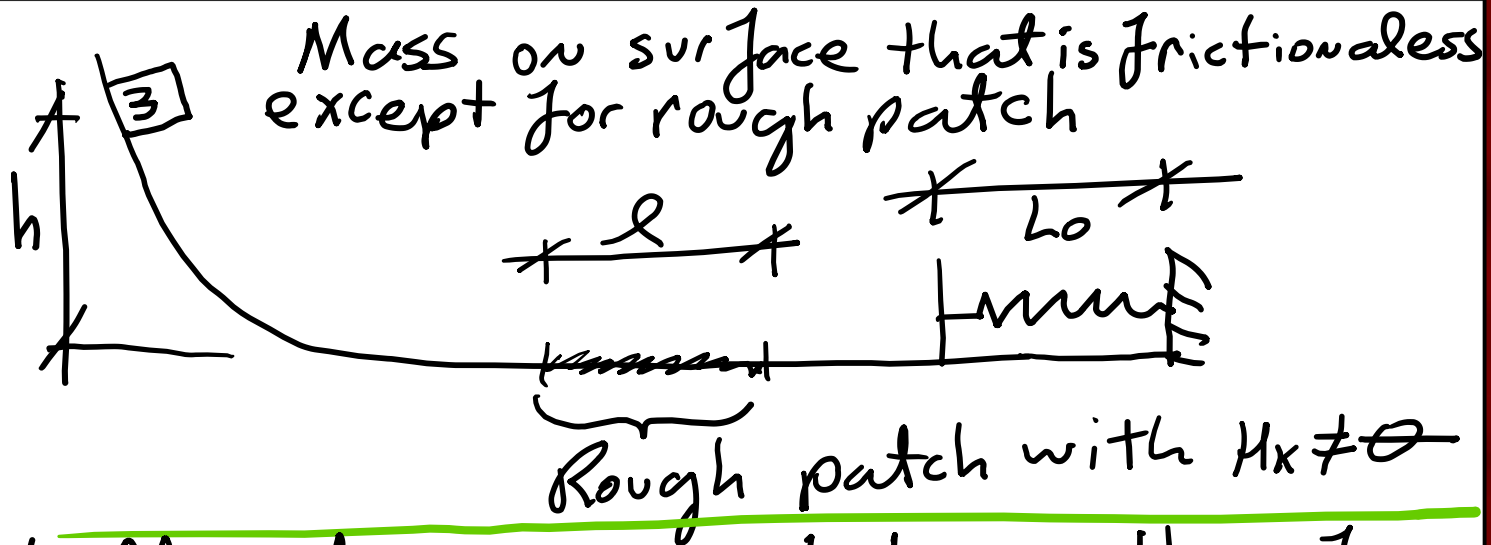 Mass on surface that is frictionaless
except for rough patch
3
h
l
Lo
Rough patch with μx ≠ 0